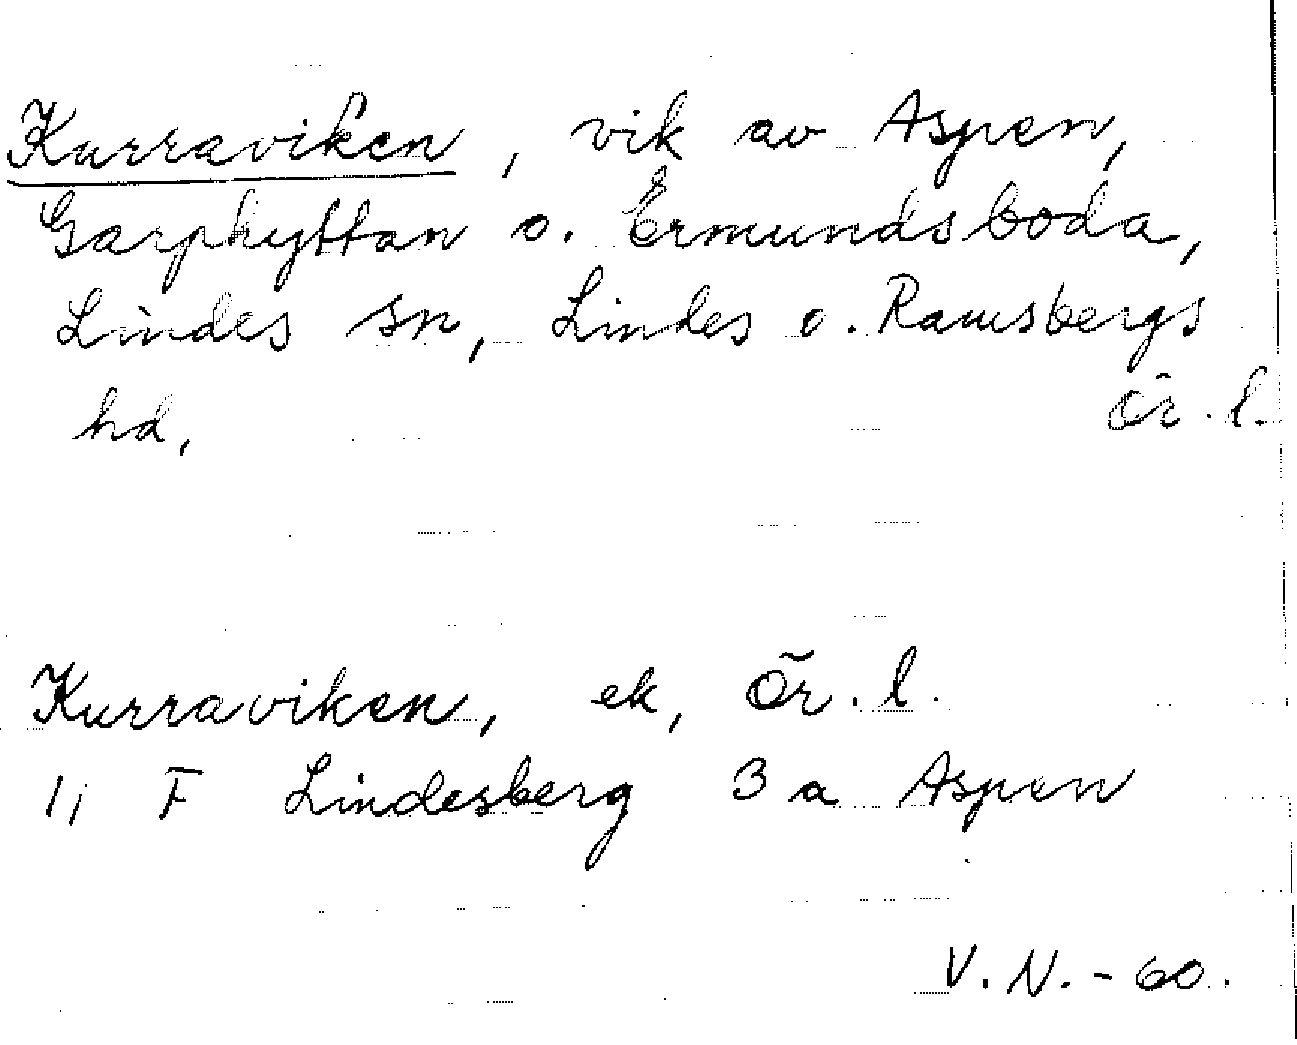 Kurraviken, vik av Aspen,
Garphyttan o. Ermundsboda,
Lindes sn, Lindes o. Ramsbergs
hd, Ör. l.
Kurraviken, ek, Ör. l.
1; F Lindesberg 3 a Aspen
V. N. - 60.